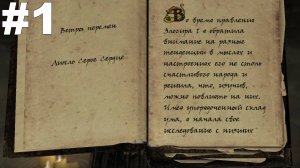 #1
Ветры перемен
Лийло Серое Сердце
Во время правления
Элесира I я обратила
внимание на разные
тенденции в мыслях и
настроениях его не столь
счастливого народа и
решила, что, изучив,
можно повлиять на них.
Имея упорядоченный склад
ума, я начала свое
исследование с низших